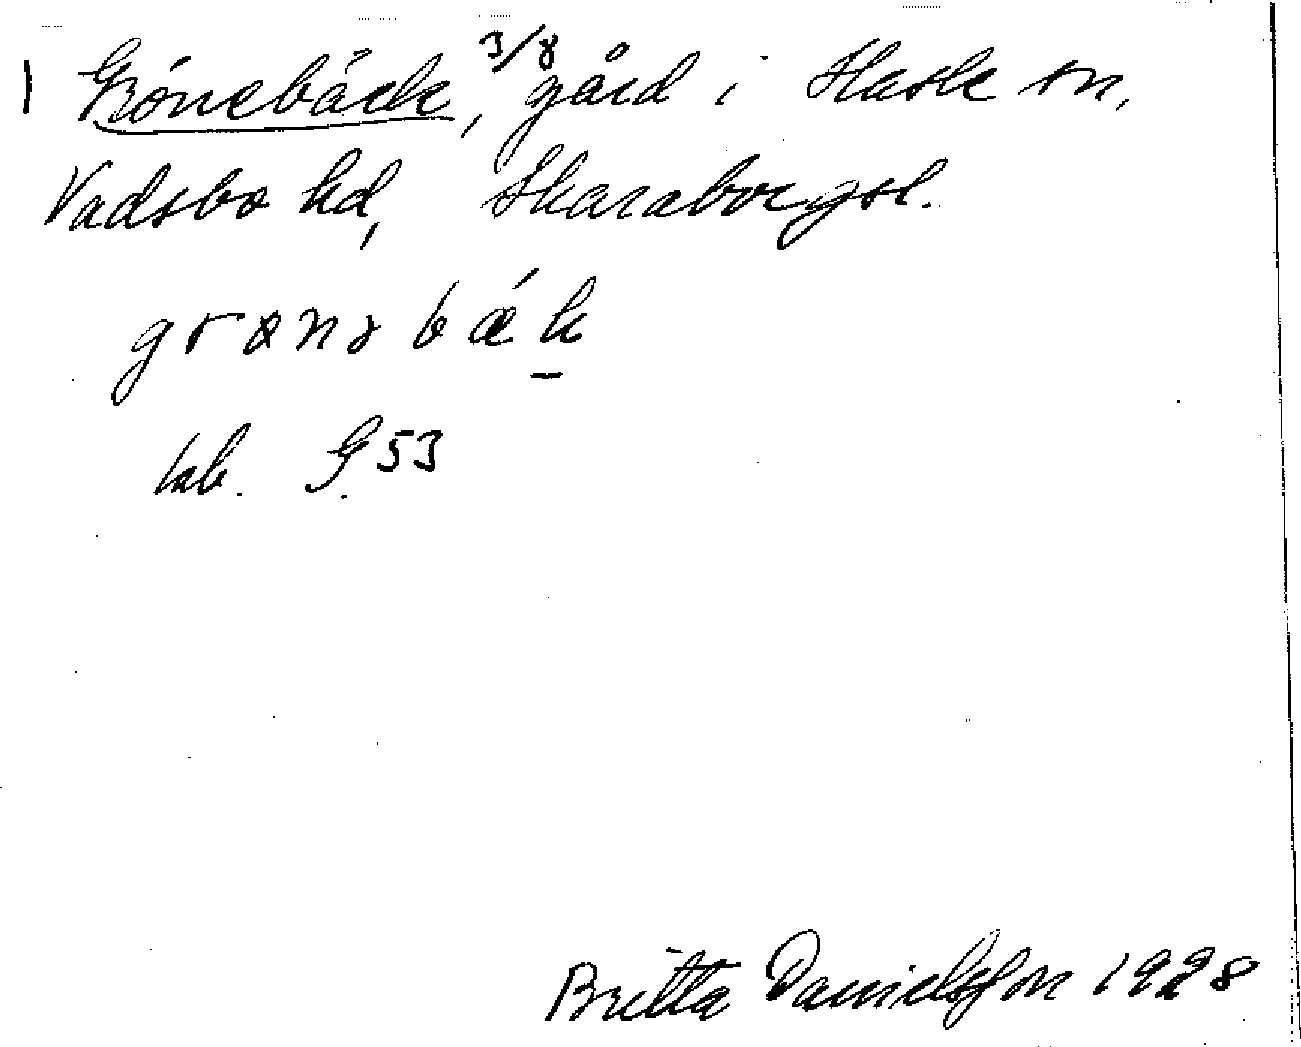 1 Grönebäck, 3/8 gård i Hassle sn,
Vadsbo hd, Skaraborgsl.
grønəbǽk
tab. G.53
Britta Danielsson 1928